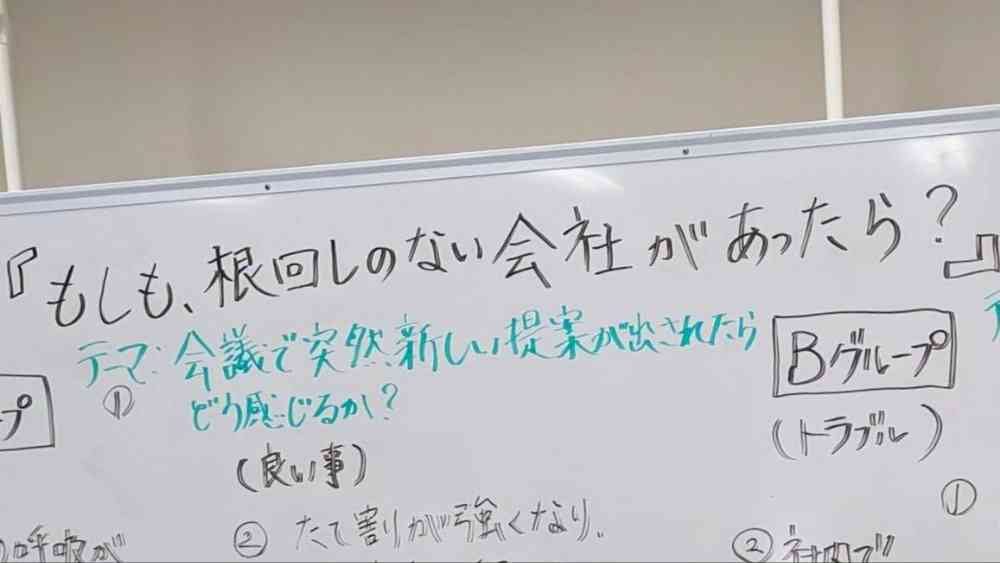 『もしも、根回しのない会社があったら?』
テマ:会議で突然新しい提案が出されたら
①
どう感じるか?
(良い事)
Bグループ
(トラブル)
①
プ
呼吸が
② たて割りが強くなり、
② 社内で